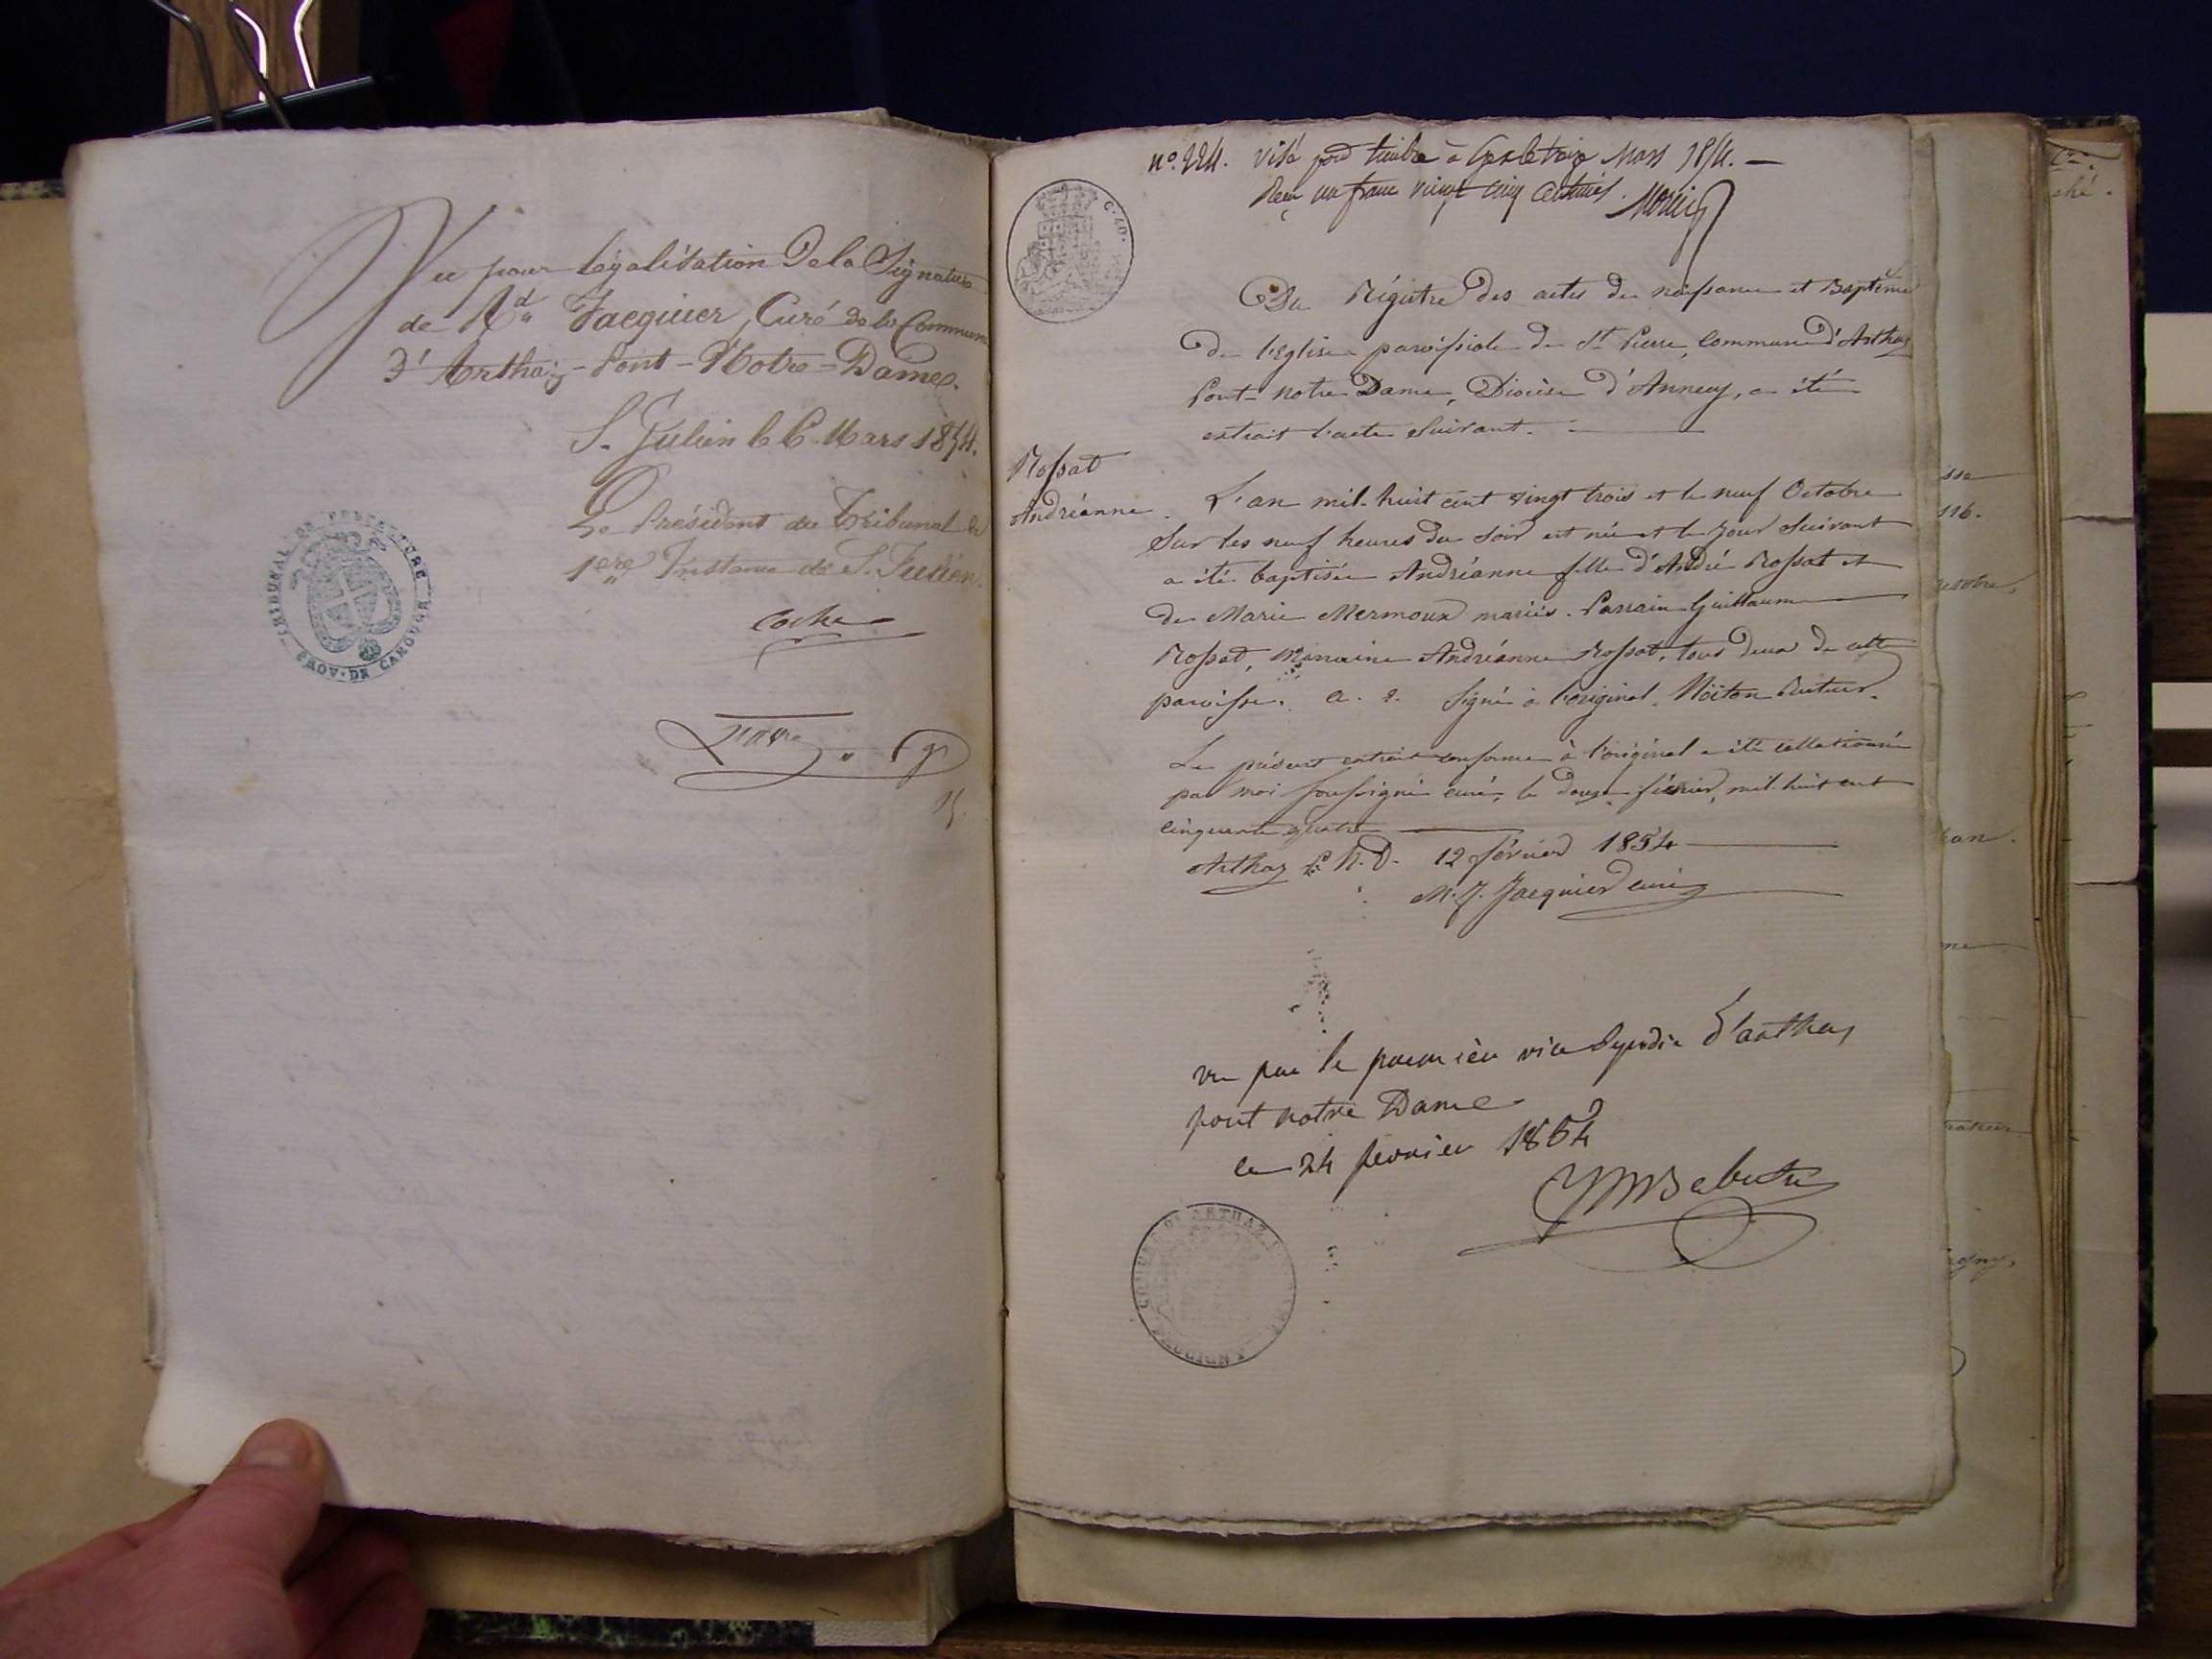 Vu pour légalisation de la Signature
de Rd Jacquier, Curé de la Commune
d'Arthaz-Pont-Notre-Dame.
St Julien le 6 Mars 1854.
Le Président du Tribunal de
1ere Instance de St Julien.
TRIBUNAL DE PREFECTURE
PROV. DE CAROUGE
15
no. 224. Visé pour timbre à Gex le treize Mars 1854. —
Reçu un franc vingt cinq centimes.
C. 40.
Du Régistre des actes de naissance et Baptême
de l'Eglise paroissiale de St Pierre, Commune d'Arthaz
Pont-notre Dame, Diocèse d'Annecy, a été
extrait l'acte Suivant. —
Rossat
Andréanne.
L'an mil-huit cent vingt trois et le neuf Octobre
Sur les neuf heures du Soir est née et le Jour Suivant
a été baptisée Andréanne fille d'André Rossat et
de Marie Mermoux mariés. Parrain Guillaume
Rossat, Marraine Andréanne Rossat, tous deux de cette
paroisse. Signé à l'original. Recteur.
Le présent extrait conforme à l'original a été collationné
par moi Soussigné curé, le douze février, mil-huit cent
cinquante quatre
Arthaz P. N. D. 12 février 1854
M. J. Jacquier curé
vu par le premier vice Syndic d'arthaz
pont notre Dame
le 24 fevrier 1854
COMUNE DI ARTHAZ
isse
116.
han.
ne